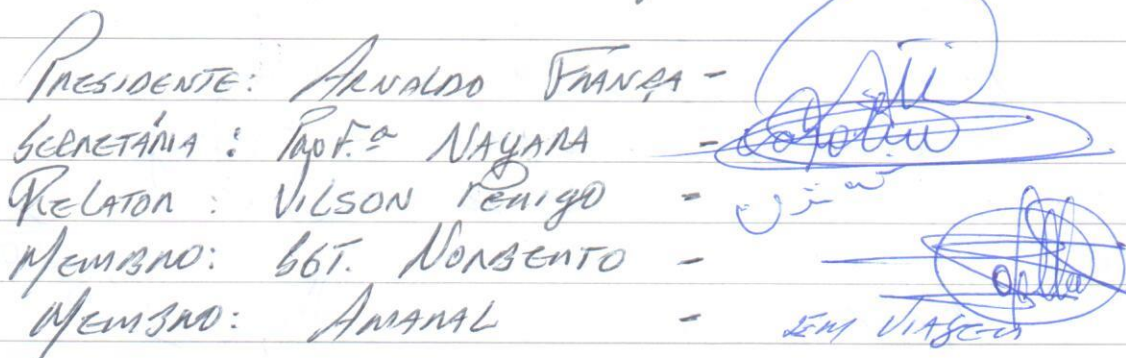 PRESIDENTE: ARNALDO FRANÇA -
SECRETÁRIA: PROF.ª NAYARA -
RELATOR: VILSON PERIGO -
MEMBRO: SGT. NORBERTO -
MEMBRO: AMARAL - EM VIAGEM